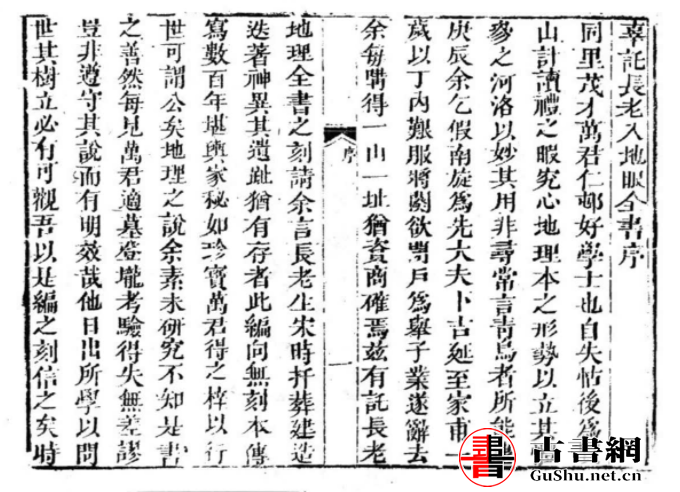 辜託長老入地眼全書序
同里茂才萬君仁邨好學士也自失怙後爲
山計讀禮之暇究心地理本之形勢以立其
參之河洛以妙其用非尋常言靑烏者所能
庚辰余乞假南旋爲先大夫卜吉延至家甫一
歲以丁內艱服將闋欲閉戶爲舉子業遂辭去
余每購得一山一址猶資商確焉茲有託長老
序
一
地理全書之刻請余言長老生宋時扦葬建造
迭著神異其遺趾猶有存者此編向無刻本傳
寫數百年堪輿家秘如珍寶萬君得之梓以行
世可謂公矣地理之說余素未研究不知是書
之善然每見萬君適墓登壠考驗得失無差謬
豈非遵守其說而有明效哉他日出所學以問
世其樹立必有可觀吾以是編之刻信之矣時
書 古書網
GuShu.net.cn